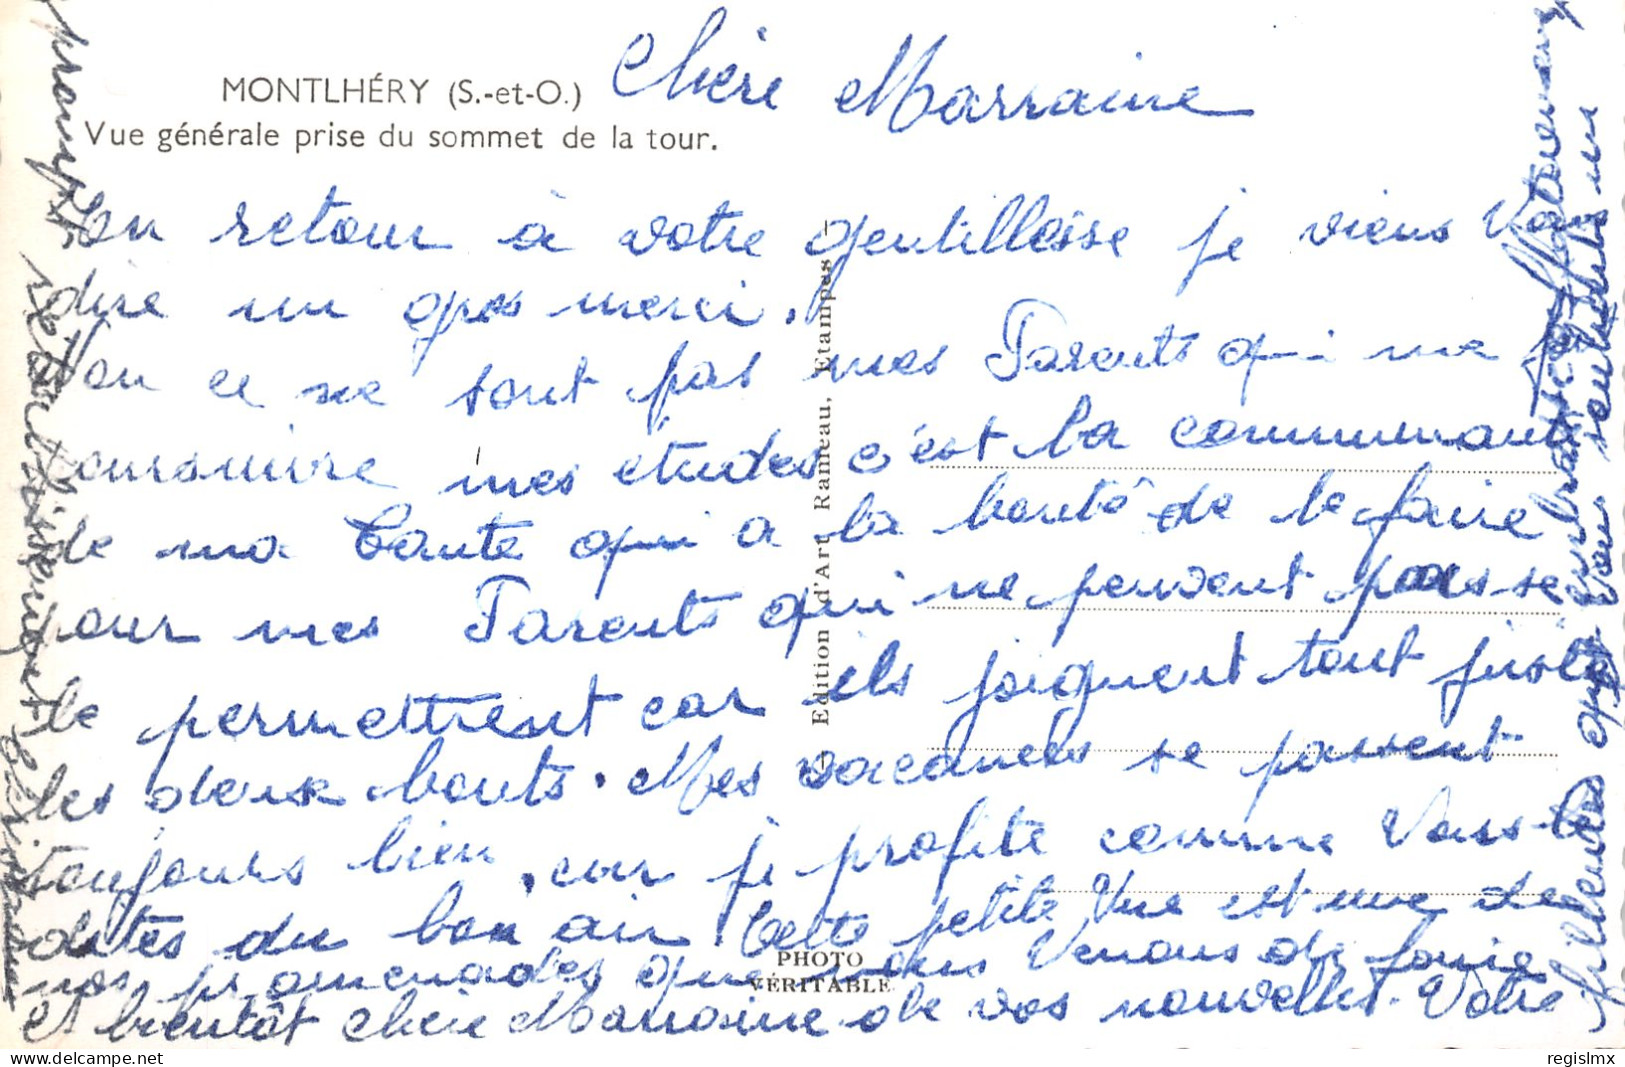 MONTLHÉRY (S.-et-O.)
Vue générale prise du sommet de la tour.
Chère Marraine
En retour à votre gentillesse je viens Vous
dire un gros merci.
Non ce ne sont pas mes Parents qui me font
poursuivre mes études c'est la communauté
de ma Tante qui a la bonté de le faire
pour mes Parents qui ne peuvent pas se
le permettrent car ils joignent tout juste
les deux bouts. Mes vacances se passent
toujours bien, car je profite comme Vous le
dites du bon air. Cette petite Vue est une de
nos promenades que nous Venons de faire
A bientôt chère Marraine de vos nouvelles. Votre
filleule qui vous embrasse
Vous souhaite un
prompt
rétablissement
Édition d'Art Rameau, Etampes
PHOTO
VÉRITABLE
regislmx